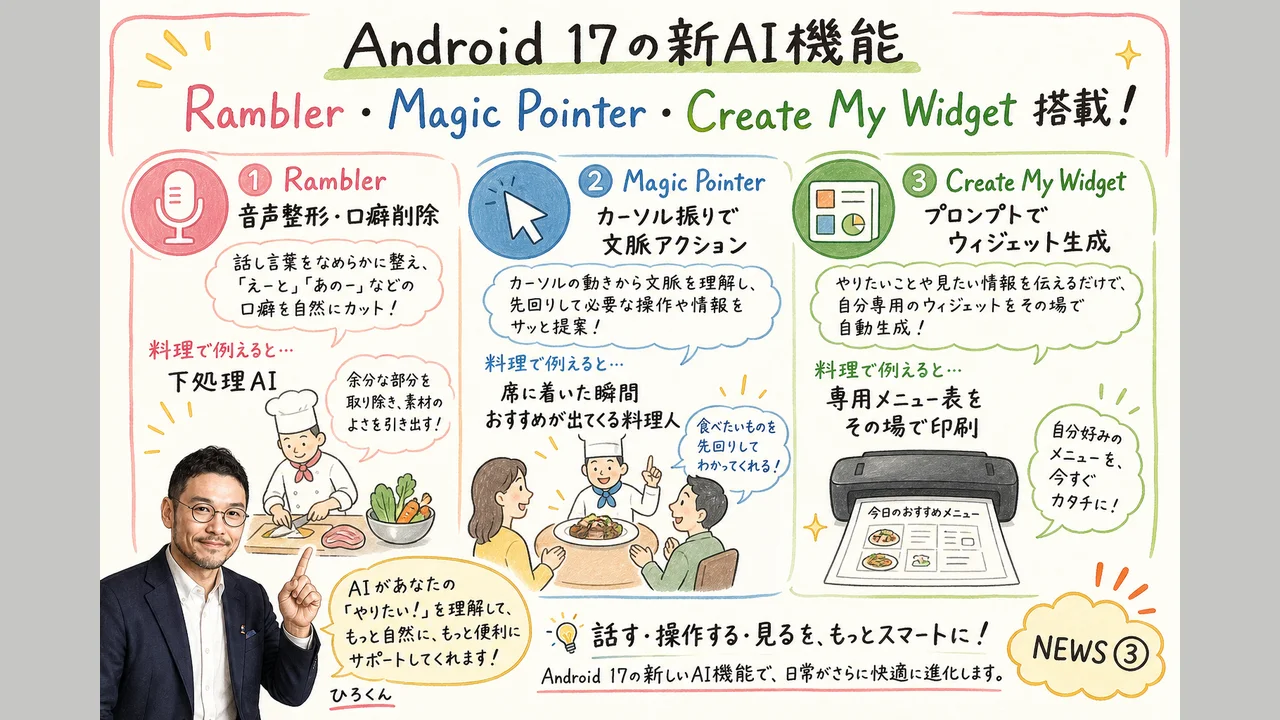 Android 17の新AI機能
Rambler・Magic Pointer・Create My Widget 搭載！
① Rambler
音声整形・口癖削除
話し言葉をなめらかに整え、
「えーと」「あのー」などの
口癖を自然にカット！
料理で例えると…
下処理AI
余分な部分を
取り除き、素材の
よさを引き出す！
② Magic Pointer
カーソル振りで
文脈アクション
カーソルの動きから文脈を理解し、
先回りして必要な操作や情報を
サッと提案！
料理で例えると…
席に着いた瞬間
おすすめが出てくる料理人
食べたいものを
先回りして
わかってくれる！
③ Create My Widget
プロンプトで
ウィジェット生成
やりたいことや見たい情報を伝えるだけで、
自分専用のウィジェットをその場で
自動生成！
料理で例えると…
専用メニュー表を
その場で印刷
自分好みの
メニューを、
今すぐ
カタチに！
今日のおすすめメニュー
AIがあなたの
「やりたい！」を理解して、
もっと自然に、もっと便利に
サポートしてくれます！
ひろくん
話す・操作する・見るを、もっとスマートに！
Android 17の新しいAI機能で、日常がさらに快適に進化します。
NEWS ③